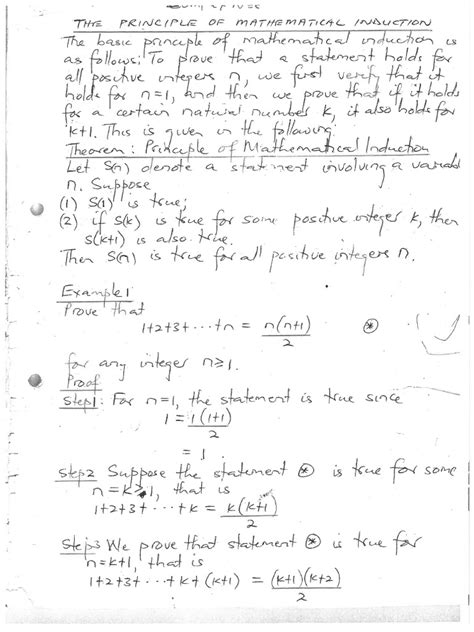 THE PRINCIPLE OF MATHEMATICAL INDUCTION
The basic principle of mathematical induction is
as follows: To prove that a statement holds for
all positive integers n, we first verify that it
holds for n=1, and then we prove that if it holds
for a certain natural number k, it also holds for
k+1. This is given in the following:
Theorem: Principle of Mathematical Induction
Let S(n) denote a statement involving a variable
n. Suppose
(1) S(1) is true;
(2) if S(k) is true for some positive integer k, then
S(k+1) is also true.
Then S(n) is true for all positive integers n.
Example 1
Prove that
1+2+3+···+n = n(n+1)/2 ⊛
for any integer n≥1.
Proof
Step1: For n=1, the statement is true since
1 = 1(1+1)/2
= 1.
Step2 Suppose the statement ⊛ is true for some
n=k≥1, that is
1+2+3+···+k = k(k+1)/2
Step3 We prove that statement ⊛ is true for
n=k+1, that is
1+2+3+···+k+(k+1) = (k+1)(k+2)/2